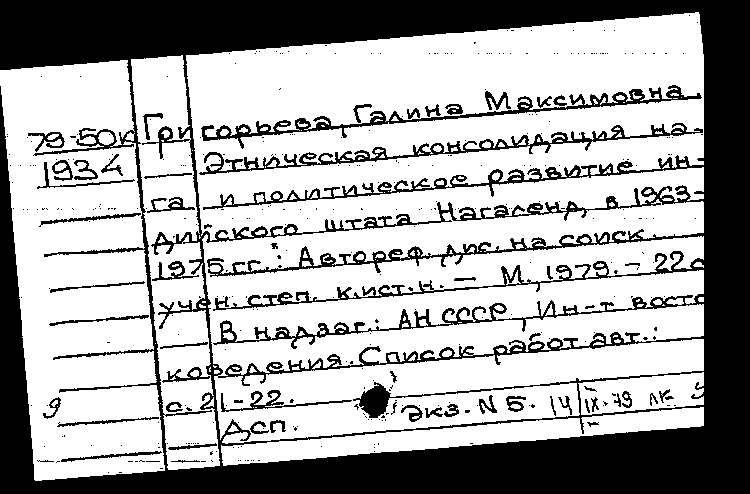 79-50к Григорьева, Галина Максимовна.
1934 Этническая консолидация на-
га и политическое развитие ин-
дийского штата Нагаленд, в 1963-
1975 гг.: Автореф. дис. на соиск.
учен. степ. к.ист.н. — М., 1979. — 22с
В надзаг.: АН СССР, Ин-т восто
коведения. Список работ авт.:
9 с. 21-22.
Дсп. Экз. N 5. 14 IX-79 лк